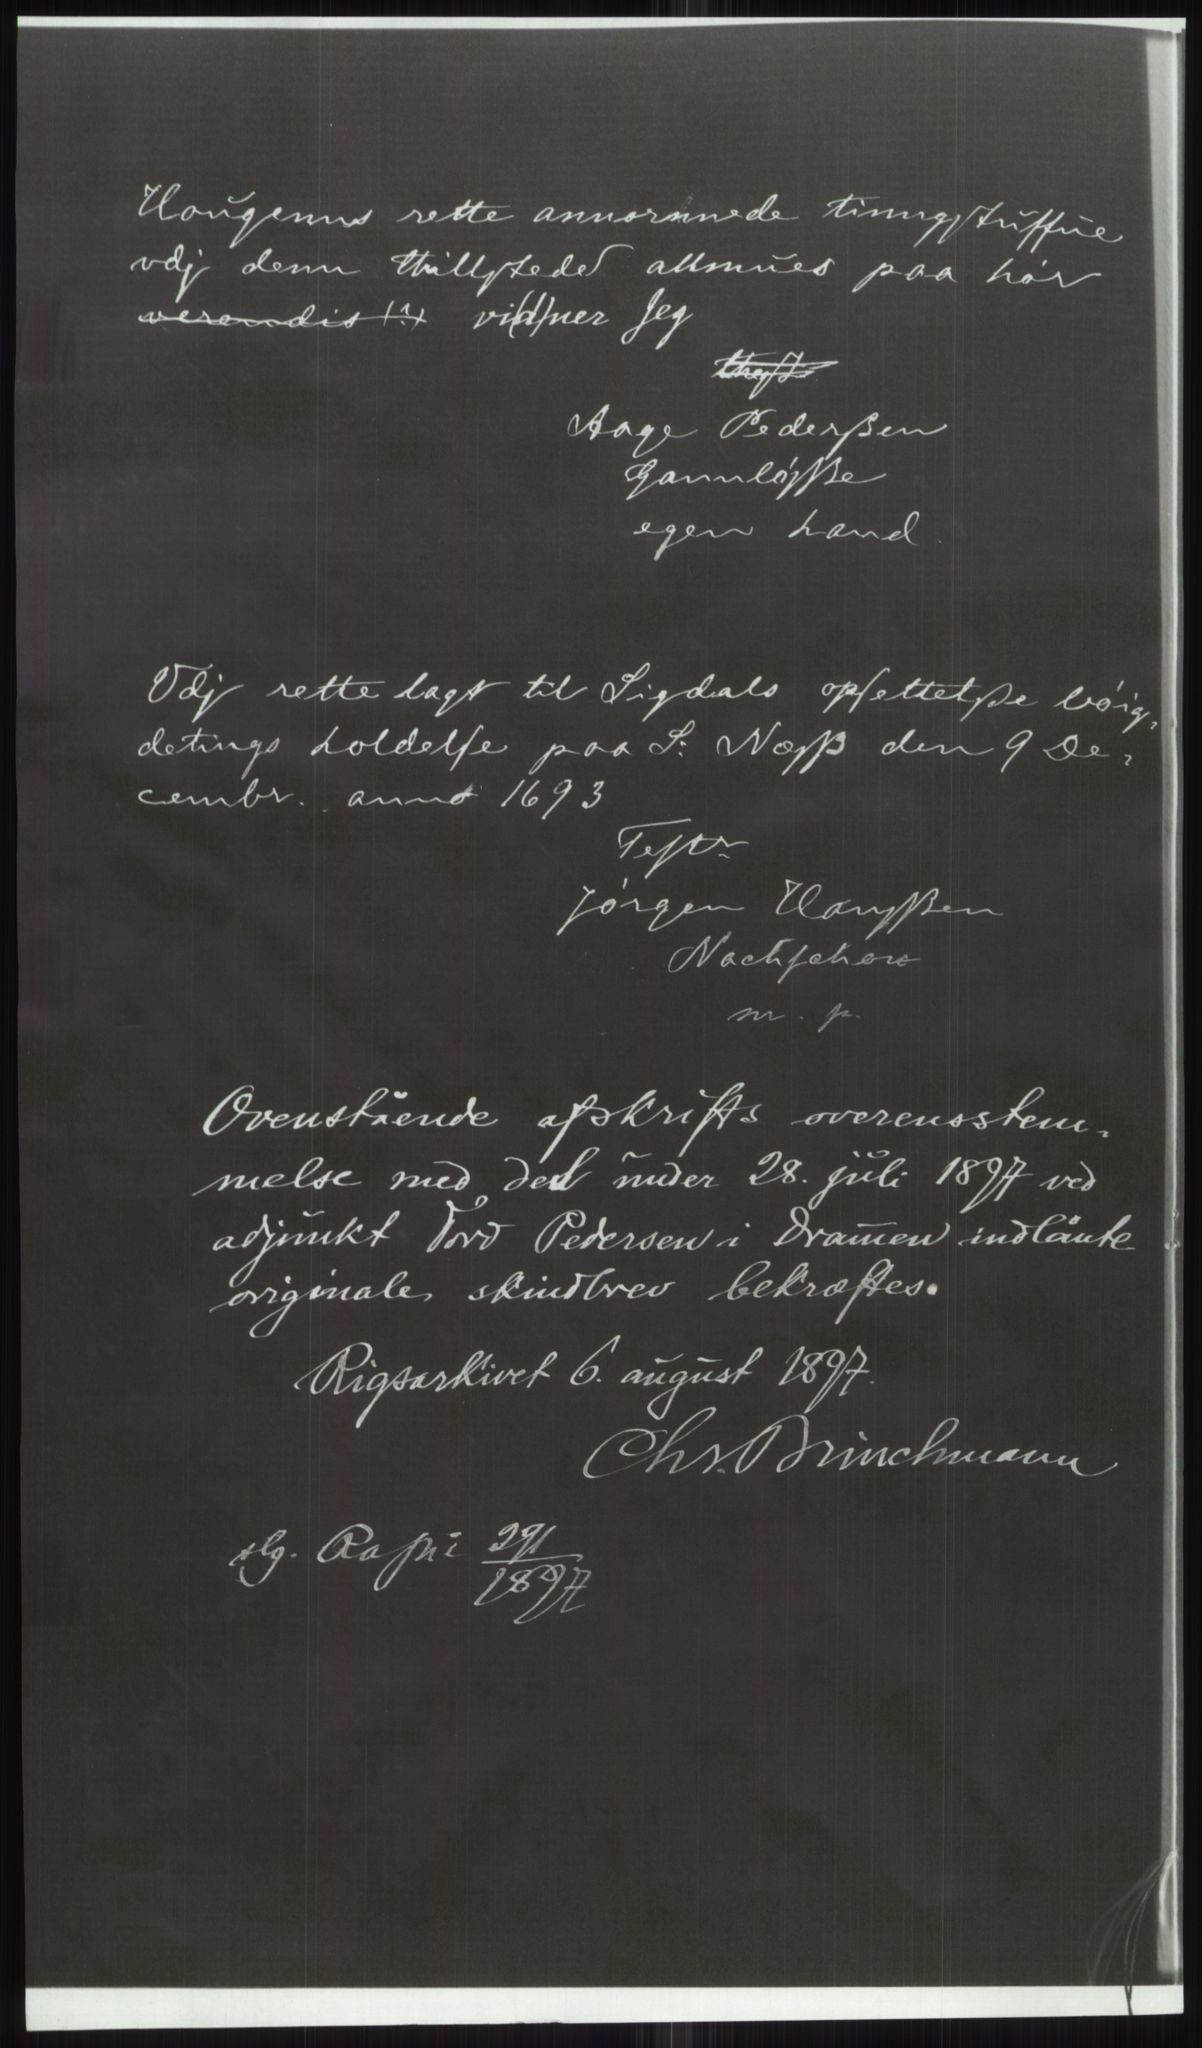 Hougenns rette annammede tinngstuffue
vdj denn thillstede allmues paa hör
verendis (?) vi(d)ner Jeg
Aage Pederßen
Gannløsße
egen hand
Vdj rette lagt til Sigdals opsettelße böig-
detings holdelse paa S: Næsß den 9 De-
cembr. anno 1693
Test
Jørgen Hansßen
m. p.
Ovenstående afskrifts overensstem-
melse med det under 28. juli 1897 ved
adjunkt Tord Pedersen i Dramen indlånte
originale skindbrev bekræftes.
Rigsarkivet 6. august 1897.
Chr. Brinchmann
291
1897